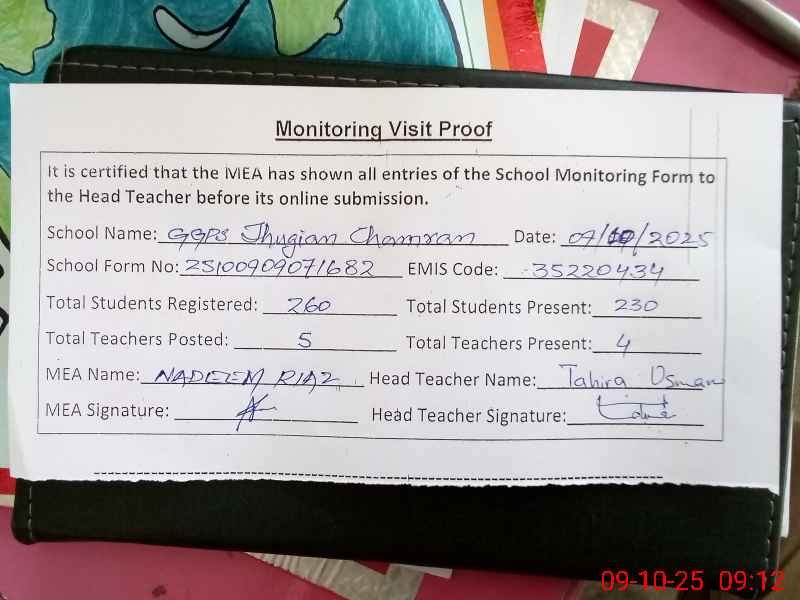 Monitoring Visit Proof
It is certified that the MEA has shown all entries of the School Monitoring Form to
the Head Teacher before its online submission.
School Name: GGPS Jhugian Chamran Date: 09/10/2025
School Form No: 25100909071682 EMIS Code: 35220434
Total Students Registered: 260 Total Students Present: 230
Total Teachers Posted: 5 Total Teachers Present: 4
MEA Name: NADEEM RIAZ Head Teacher Name: Tahira Usman
MEA Signature: Head Teacher Signature:
09-10-25 09:12